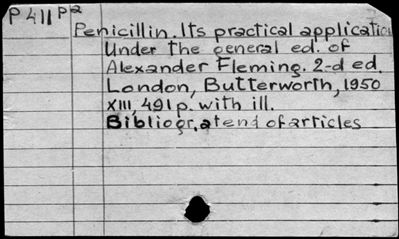 P 411 pa
Penicillin. Its practical application
Under the general ed. of
Alexander Fleming. 2-d ed.
London, Butterworth, 1950
XIII, 491 p. with ill.
Bibliogr. at end of articles